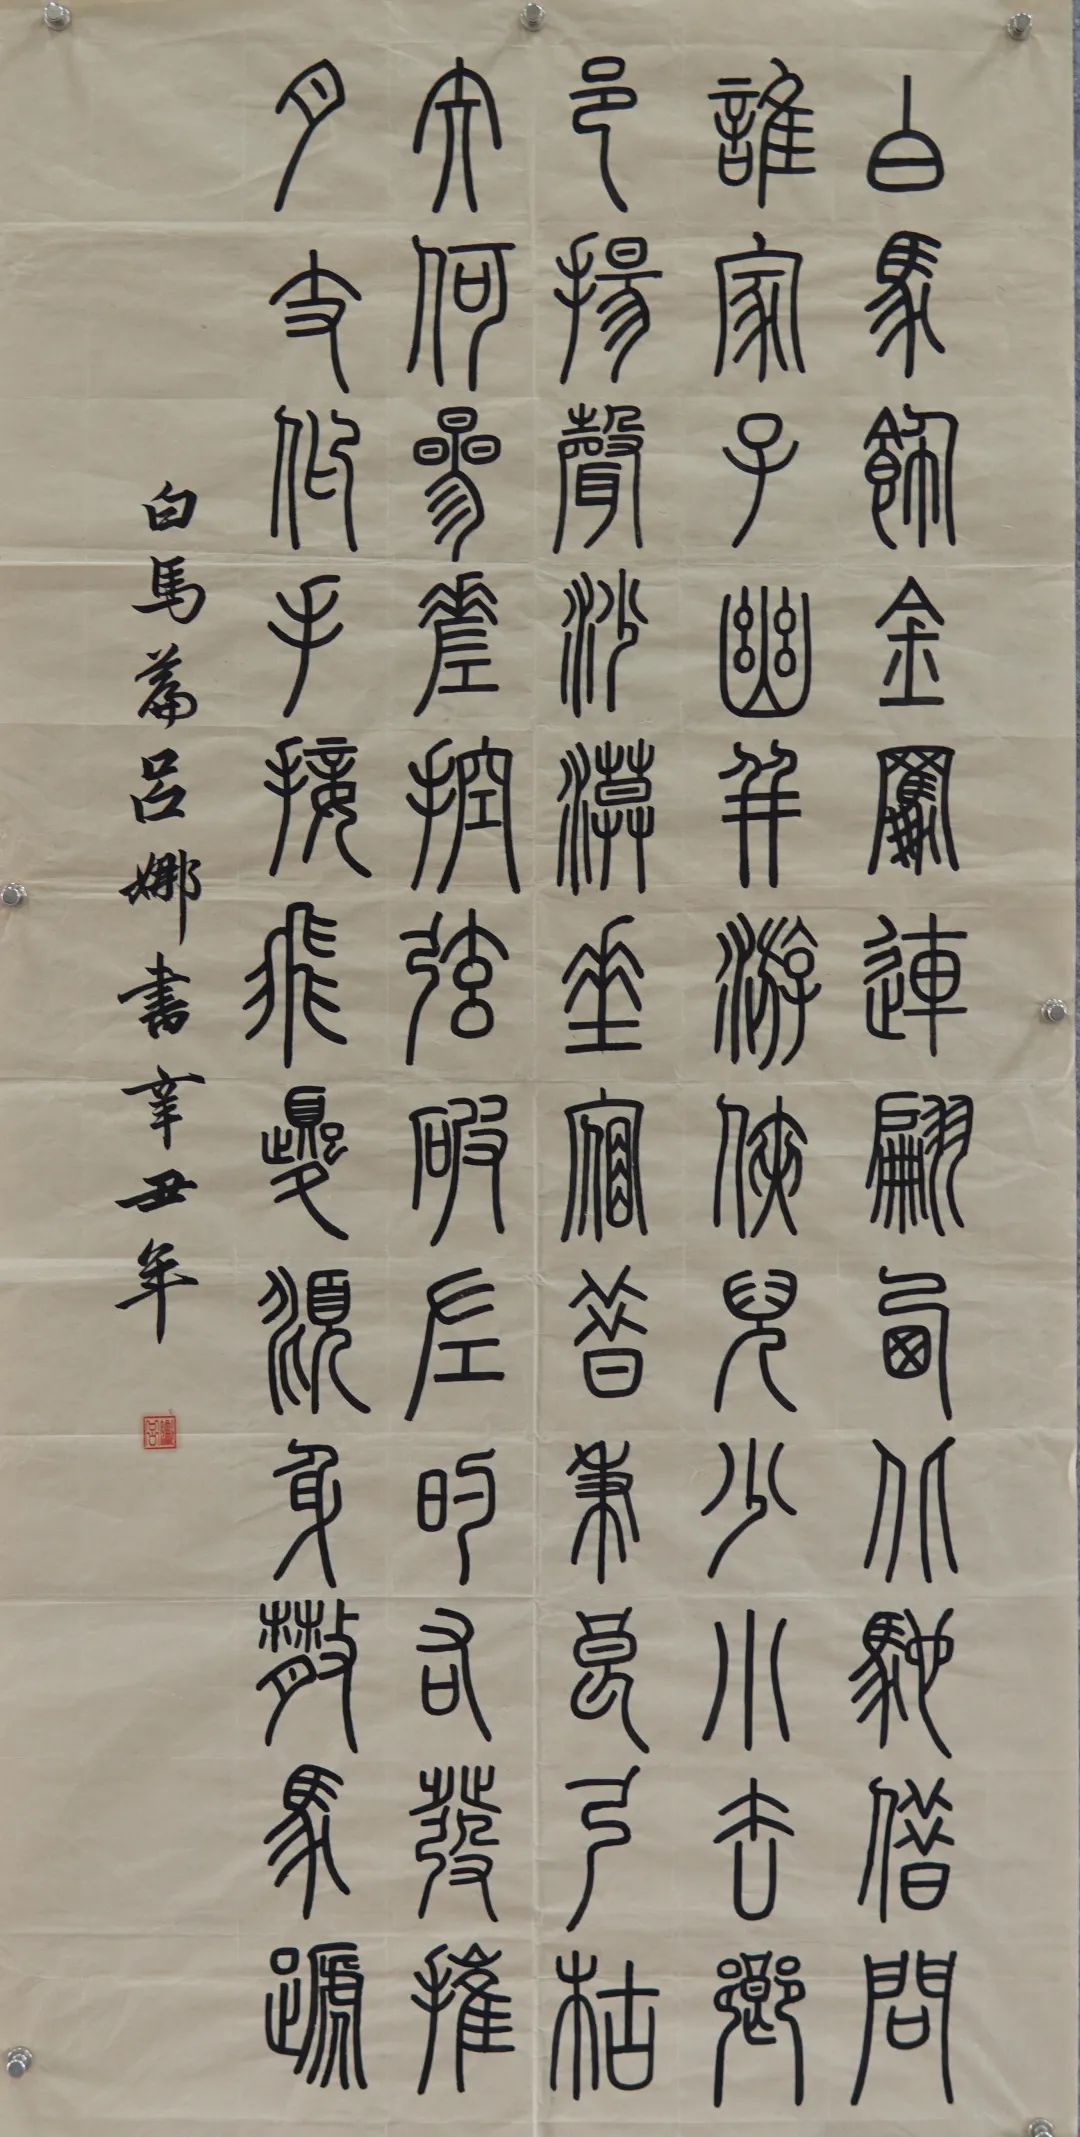 白馬飾金羈連翩西北馳借問
誰家子幽并游俠兒少小去鄉
邑揚聲沙漠垂宿昔秉良弓枯
矢何參差控弦破左的右發摧
月支仰手接飛猱須身散馬蹏
白馬篇吕娜書辛丑年